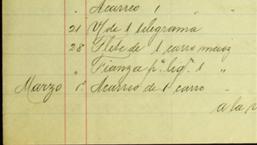 " Acarreo 1 "
21 V/ de 1 telegrama
28 Flete de 1 carro maiz
" Fianza pª. legª. 1 "
Marzo 1º Acarreo de 1 carro "
a la